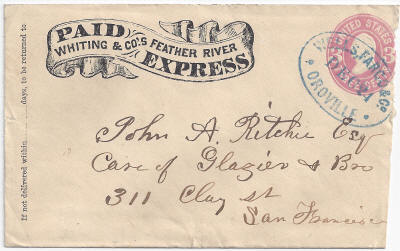 PAID
WHITING & CO'S FEATHER RIVER
EXPRESS
UNITED STATES
WELLS, FARGO & CO
OROVILLE
If not delivered within
days, to be returned to
John A. Ritchie Esq
Care of Glazier & Bro
311 Clay st
San Francisco